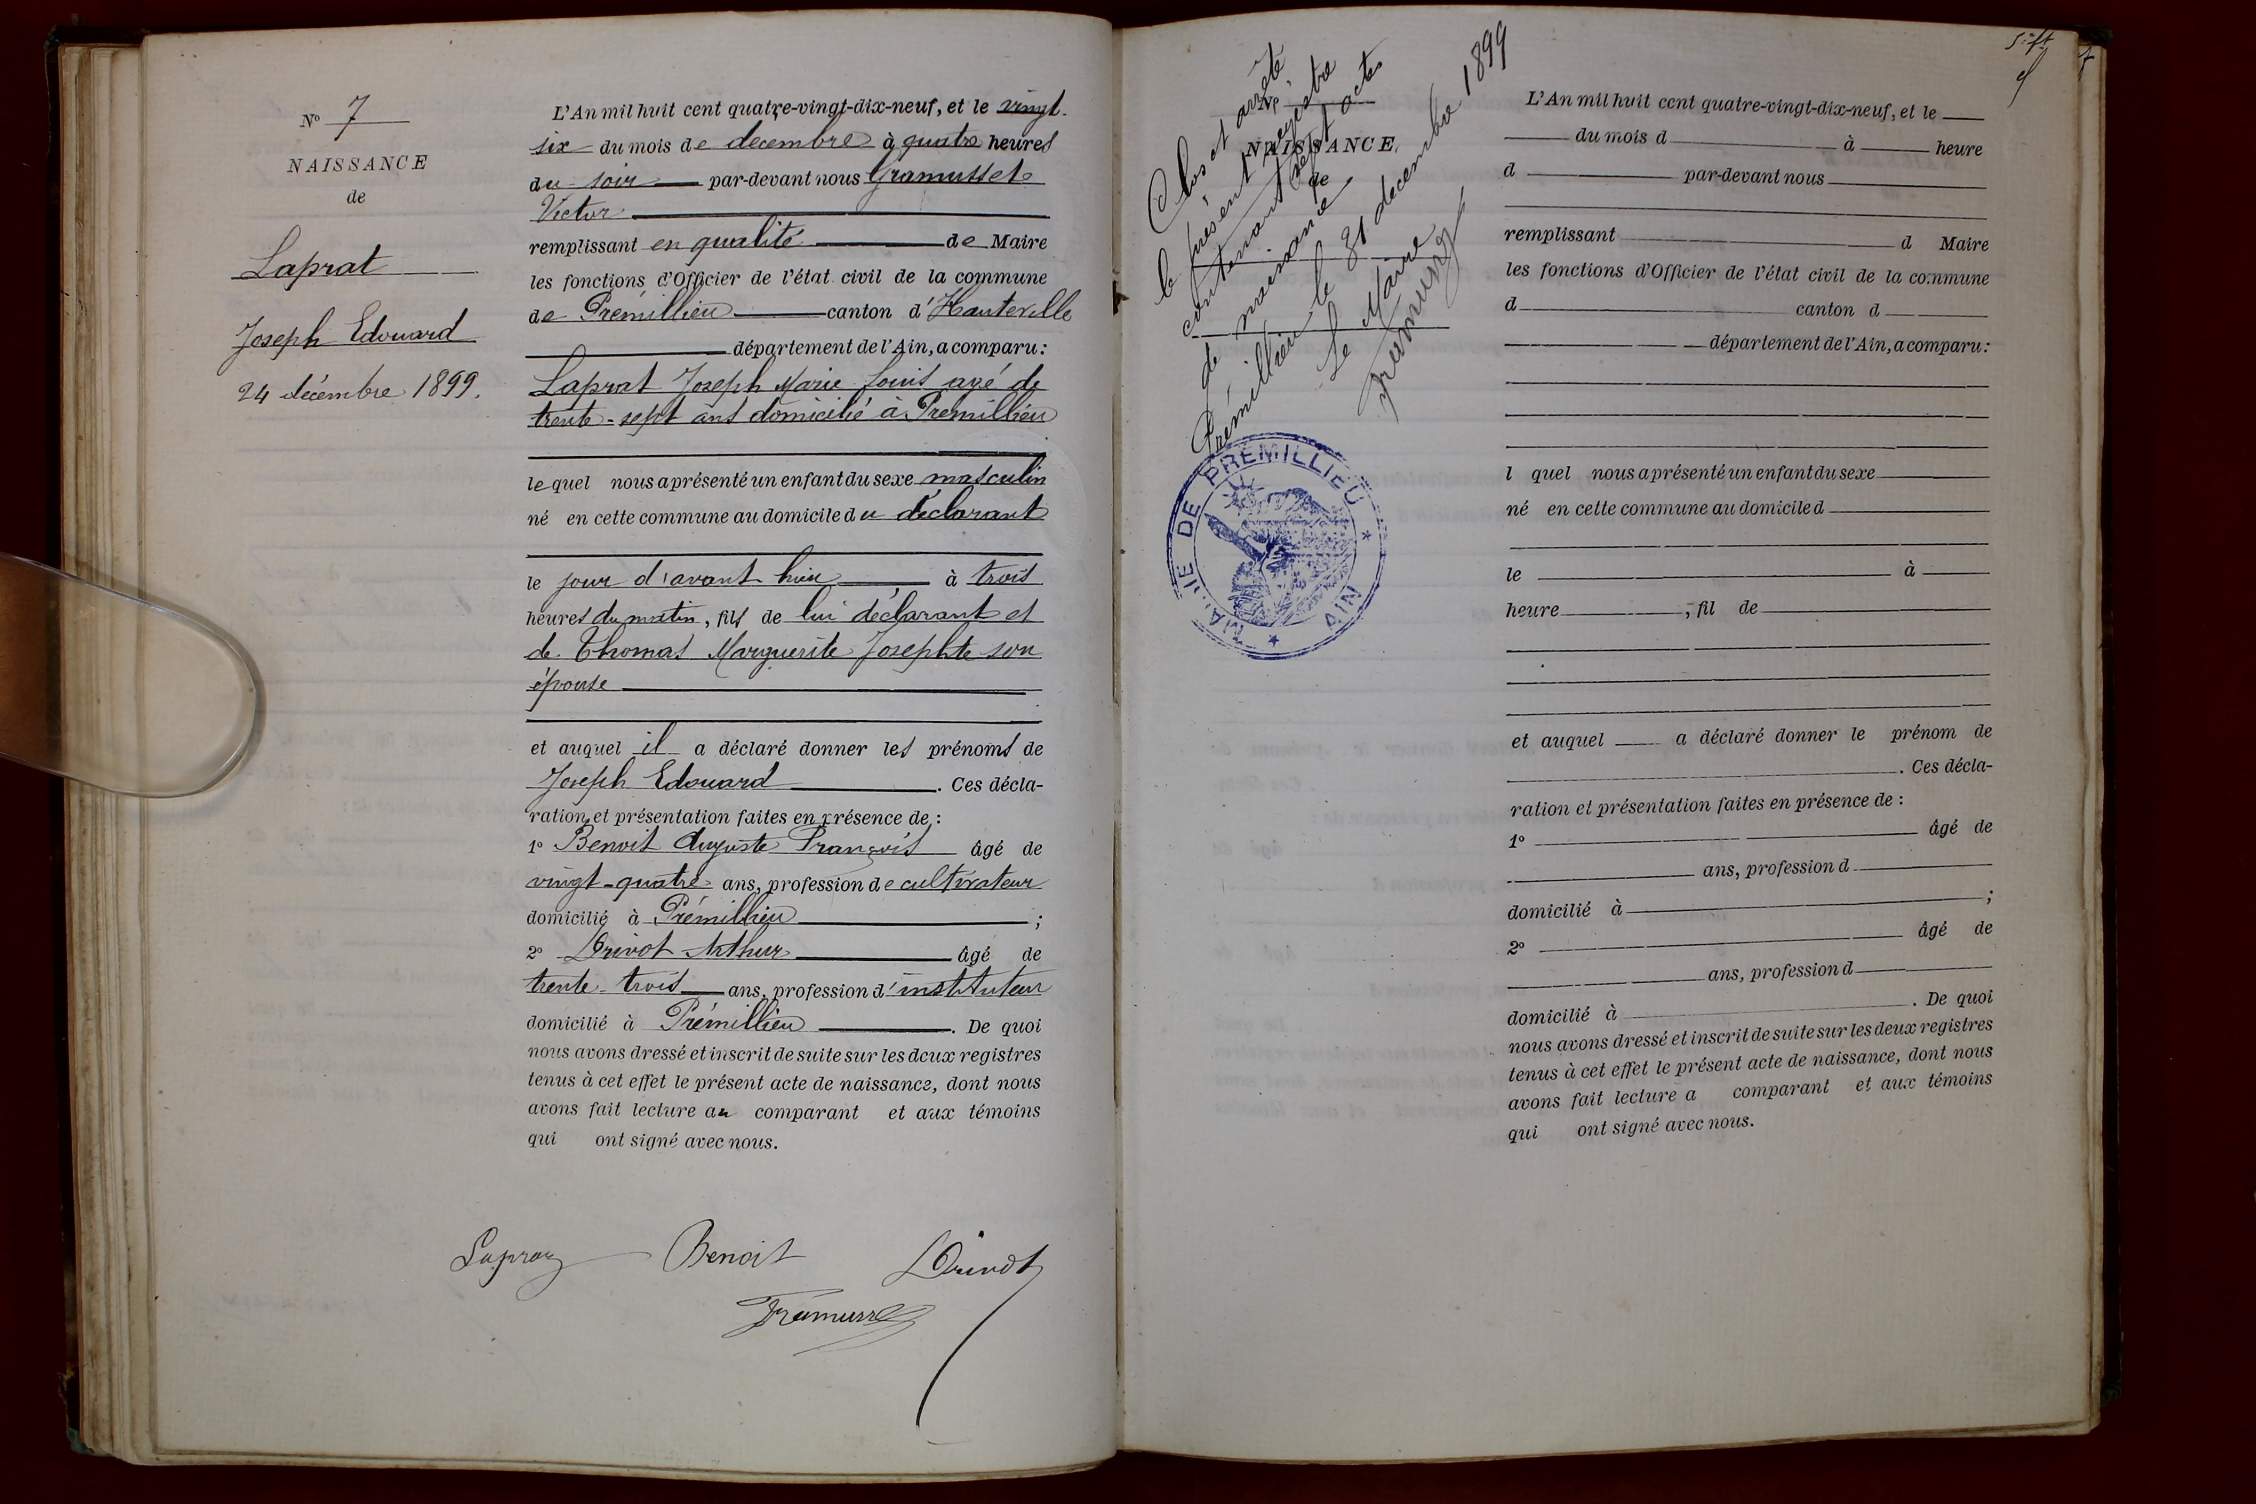 N° 7
NAISSANCE
de
Laprat
Joseph Edouard
24 décembre 1899.
L'An mil huit cent quatre-vingt-dix-neuf, et le vingt-
six du mois de decembre à quatre heures
du soir par-devant nous Gramusset
Victor
remplissant en qualité de Maire
les fonctions d'Officier de l'état civil de la commune
de Prémillieu canton d'Hauteville
département de l'Ain, a comparu :
Laprat Joseph Marie Louis agé de
trente-sept ans domicilié à Prémillieu
lequel nous a présenté un enfant du sexe masculin
né en cette commune au domicile du déclarant
le jour d'avant hier à trois
heures du matin, fils de lui déclarant et
de Thomas Marguerite Josephte son
épouse
et auquel il a déclaré donner les prénoms de
Joseph Edouard . Ces décla-
ration et présentation faites en présence de :
1° Benoit Auguste François âgé de
vingt-quatre ans, profession de cultivateur
domicilié à Prémillieu ;
2° Drivot Arthur âgé de
trente-trois ans, profession d'instituteur
domicilié à Prémillieu . De quoi
nous avons dressé et inscrit de suite sur les deux registres
tenus à cet effet le présent acte de naissance, dont nous
avons fait lecture au comparant et aux témoins
qui ont signé avec nous.
Benoit
Drivot
N°
NAISSANCE
de
Clos et arrêté
le présent registre
contenant sept actes
de naissance
Prémillieu le 31 décembre 1899
Le Maire
MAIRIE DE PRÉMILLIEU * AIN *
Sept
L'An mil huit cent quatre-vingt-dix-neuf, et le
du mois d à heure
d par-devant nous
remplissant d Maire
les fonctions d'Officier de l'état civil de la commune
d canton d
département de l'Ain, a comparu :
l quel nous a présenté un enfant du sexe
né en cette commune au domicile d
le à
heure , fil de
et auquel a déclaré donner le prénom de
. Ces décla-
ration et présentation faites en présence de :
1° âgé de
ans, profession d
domicilié à ;
2° âgé de
ans, profession d
domicilié à . De quoi
nous avons dressé et inscrit de suite sur les deux registres
tenus à cet effet le présent acte de naissance, dont nous
avons fait lecture a comparant et aux témoins
qui ont signé avec nous.